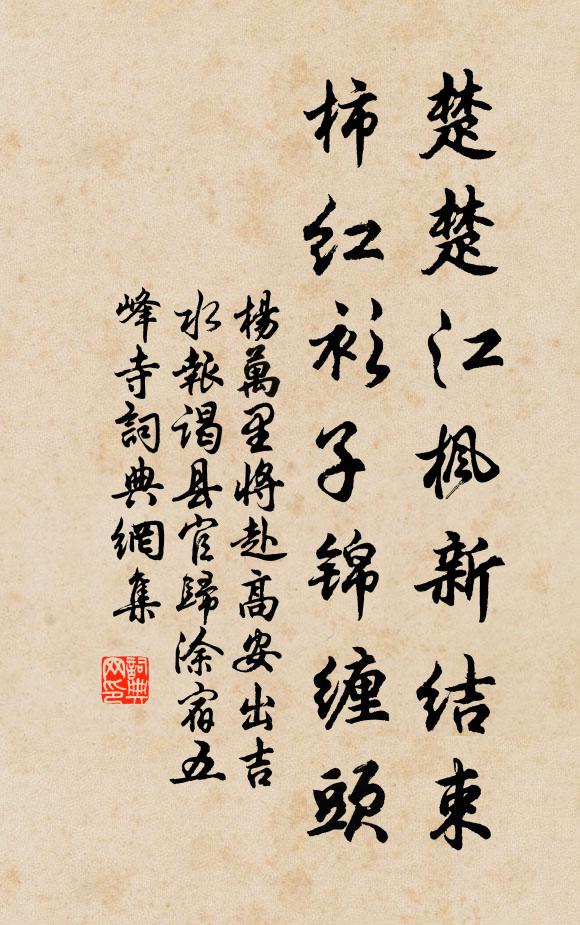 楚楚江楓新結束
柿紅衫子錦纏頭
楊萬里將赴高安出吉
水報謁县官歸涂宿五
峰寺詞典網集
詞典
网印